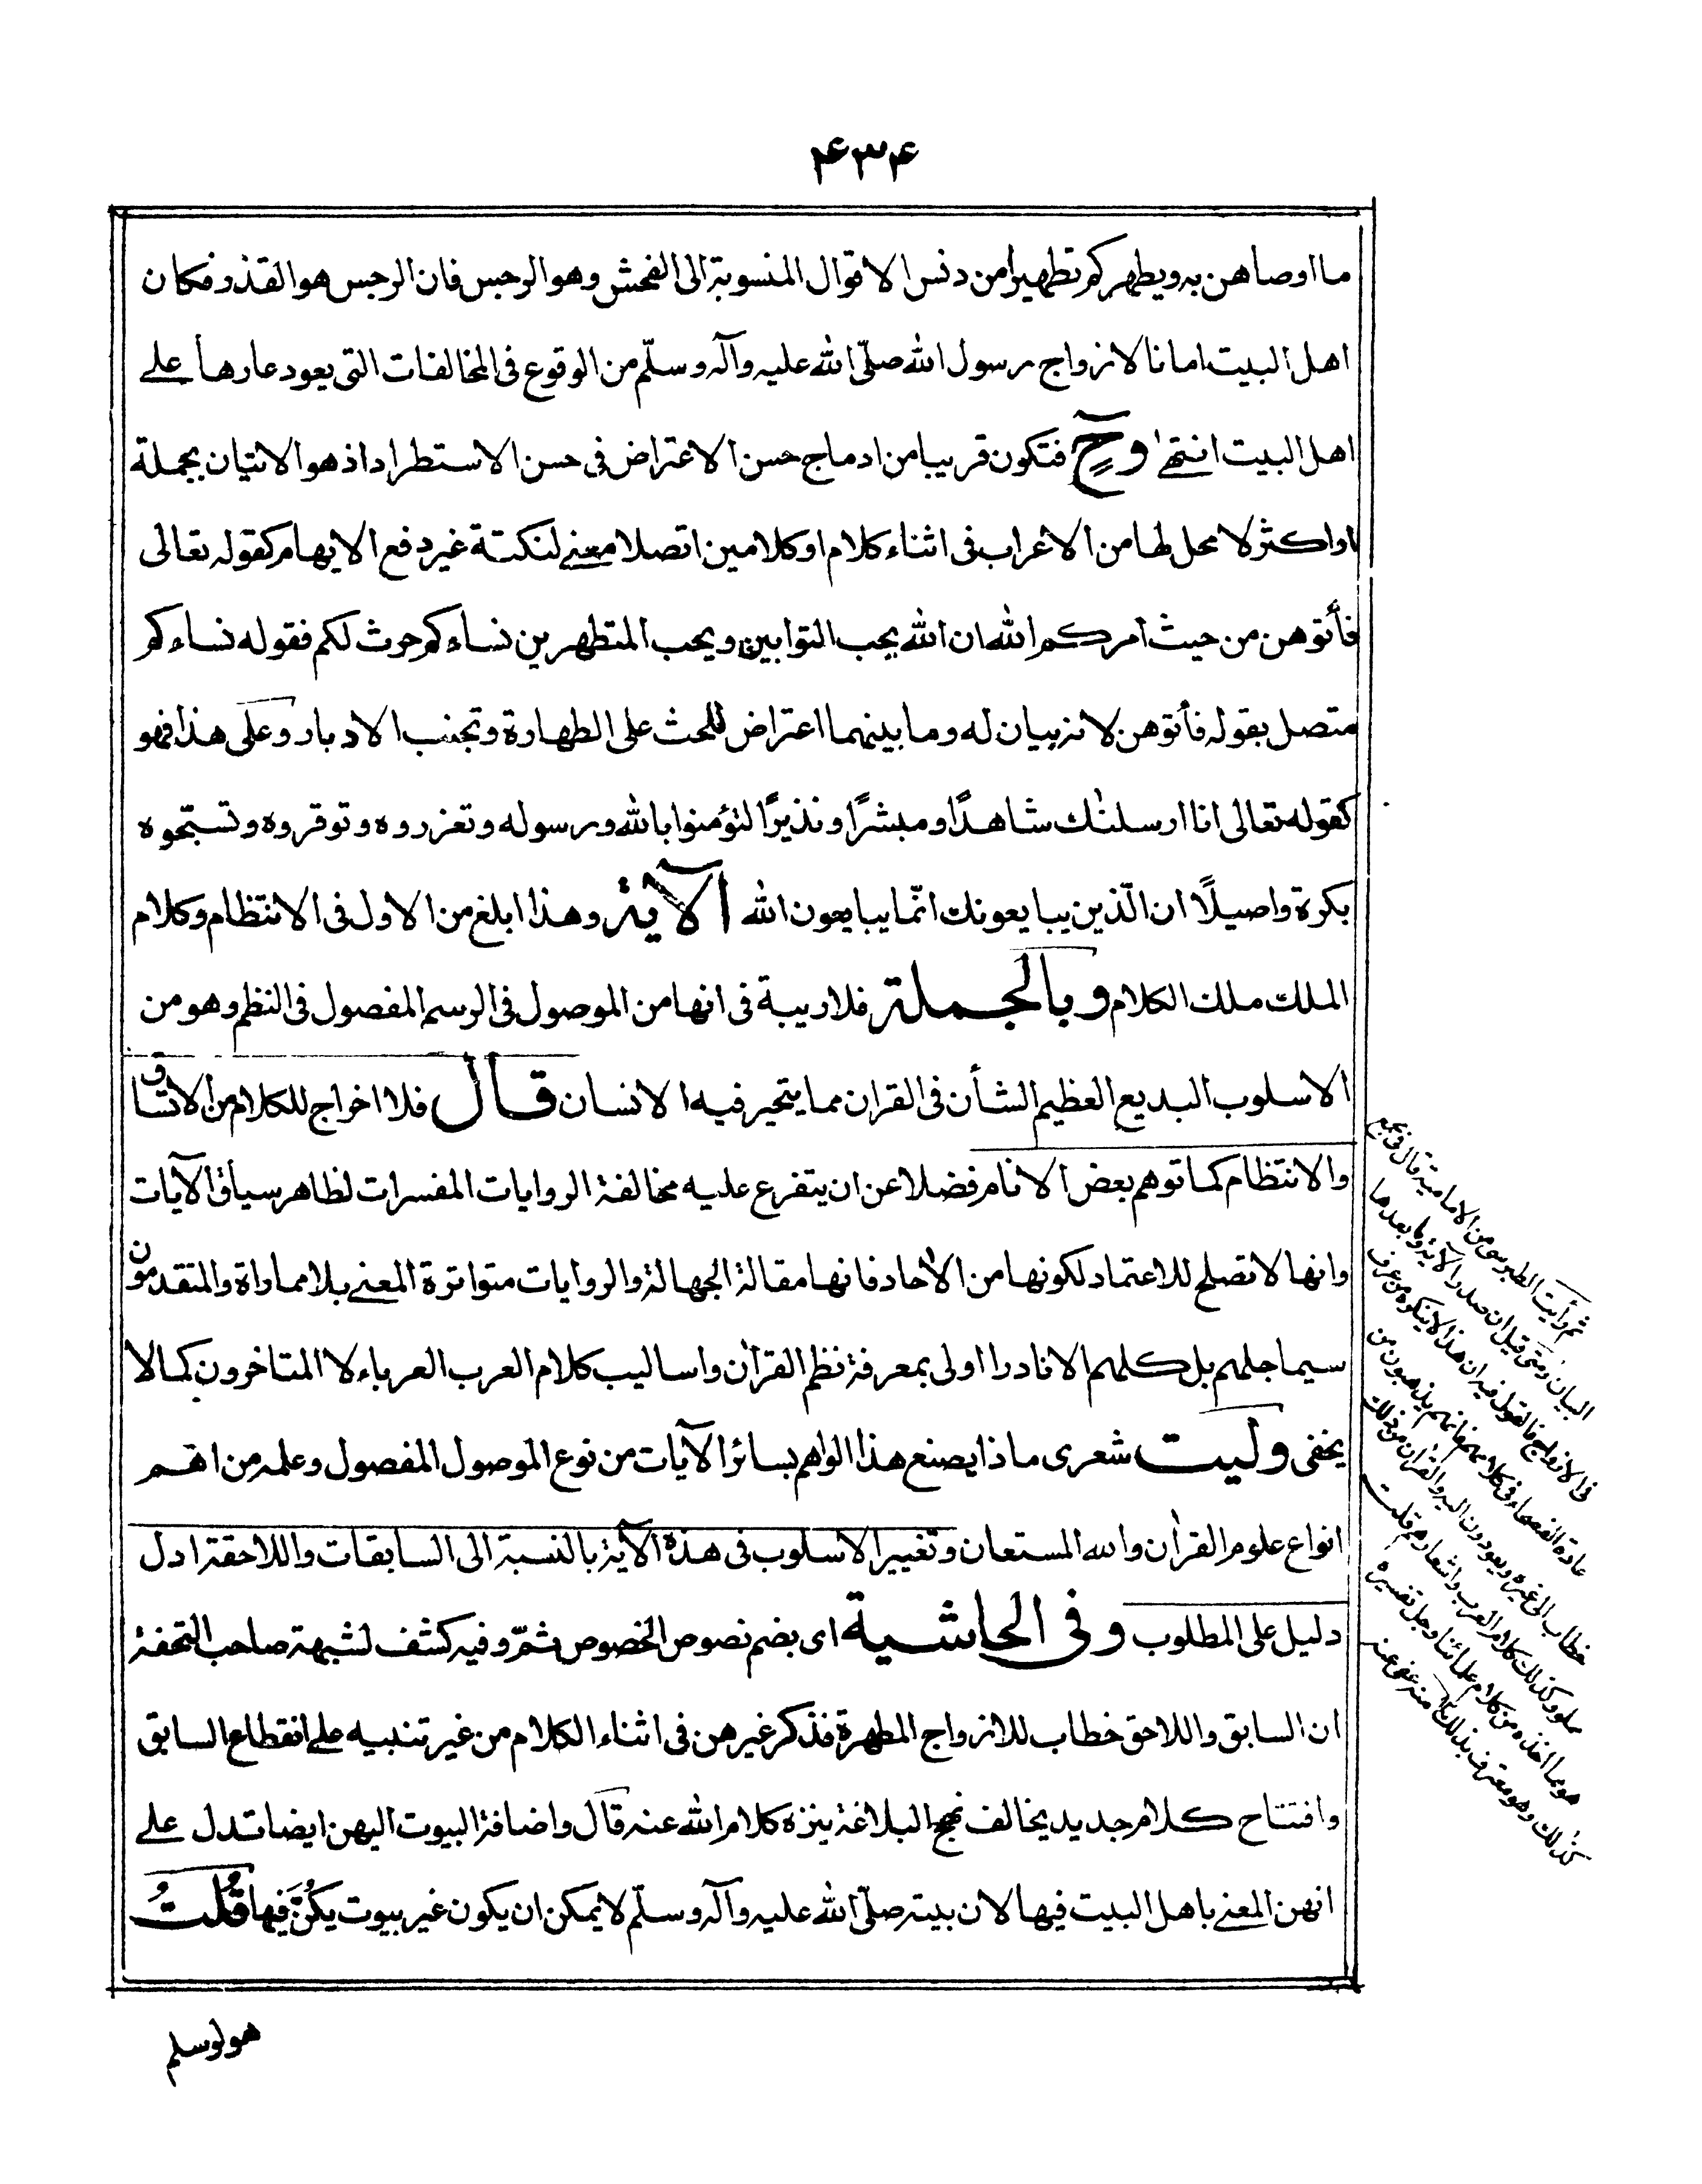 ۴۳۴
ما اوصاهن به ويطهركم تطهيرا من دنس الاقوال المنسوبة الى الفحش وهو الرجس فان الرجس هو القذر فكان
اهل البيت امانا لازواج رسول الله صلّى الله عليه وآله وسلّم من الوقوع فى المخالفات التى يعود عارها على
اهل البيت انتهى وحٍ فتكون قريبا من ادماج حسن الاعتراض فى حسن الاستطراد اذ هو الاتيان بجملة
او اكثر لا محل لها من الاعراب فى اثناء كلام او كلامين اتصلا معنى لنكتة غير دفع الايهام كقوله تعالى
فأتوهن من حيث امركم الله ان الله يحب التوابين ويحب المتطهرين نساءكم حرث لكم فقوله نساءكم
متصل بقوله فأتوهن لانه بيان له وما بينهما اعتراض للحث على الطهارة وتجنب الادبار وعلى هذا فهو
كقوله تعالى انا ارسلنٰك شاهدًا ومبشرًا ونذيرًا لتؤمنوا بالله ورسوله وتعزروه وتوقروه وتسبّحوه
بكرة واصيلًا ان الّذين يبايعونك انّما يبايعون الله الآية وهذا ابلغ من الاول فى الانتظام وكلام
الملك ملك الكلام وبالجملة فلا ريبة فى انها من الموصول فى الرسم المفصول فى النظم وهو من
الاسلوب البديع العظيم الشأن فى القران مما يتحير فيه الانسان قال فلا اخراج للكلام من الاتساق
والانتظام كما توهم بعض الانام فضلا عن ان يتفرع عليه مخالفة الروايات المفسرات لظاهر سياق الآيات
وانها لا تصلح للاعتماد لكونها من الأحاد فانها مقالة الجهالة والروايات متواترة المعنى بلا مماراة والمتقدمون
سيما جلهم بل كلهم الا نادرا اولى بمعرفة نظم القرآن واساليب كلام العرب العرباء لا المتاخرون كما لا
يخفى وليت شعرى ماذا يصنع هذا الواهم بسائر الآيات من نوع الموصول المفصول وعلمه من اهم
انواع علوم القرأن والله المستعان وتغيير الاسلوب فى هذه الآية بالنسبة الى السابقات واللاحقة ادل
دليل على المطلوب وفى الحاشية اى بضم نصوص الخصوص ثمّ وفيه كشف لشبهة صاحب التحفة
ان السابق واللاحق خطاب للازواج المطهرة فذكر غيرهن فى اثناء الكلام من غير تنبيه على انقطاع السابق
وافتتاح كلام جديد يخالف نهج البلاغة ينزه كلام الله عنه قال واضافة البيوت اليهن ايضا تدل على
انهن المعنى باهل البيت فيها لان بيته صلّى الله عليه وآله وسلّم لا يمكن ان يكون غير بيوت يكُنَّ فيها قُلتُ
هو لو سلم
ثم رأيت الطبرسى من الامامية قال فى مجمع
البيان ومتى قيل ان صدر الآية وما بعدها
فى الازواج فالقول فيه ان هذا لا ينكره من عرف
عادة الفصحاء فى كلامهم فانهم يذهبون من
خطاب الى غيره ويعودون اليه والقرآن من ذلك
مملو وكذلك كلام العرب واشعارهم قلت
هو مما اخذه من كلام علمائنا وجل تفسيره
كذلك وهو معترف بذلك منه عفى عنه